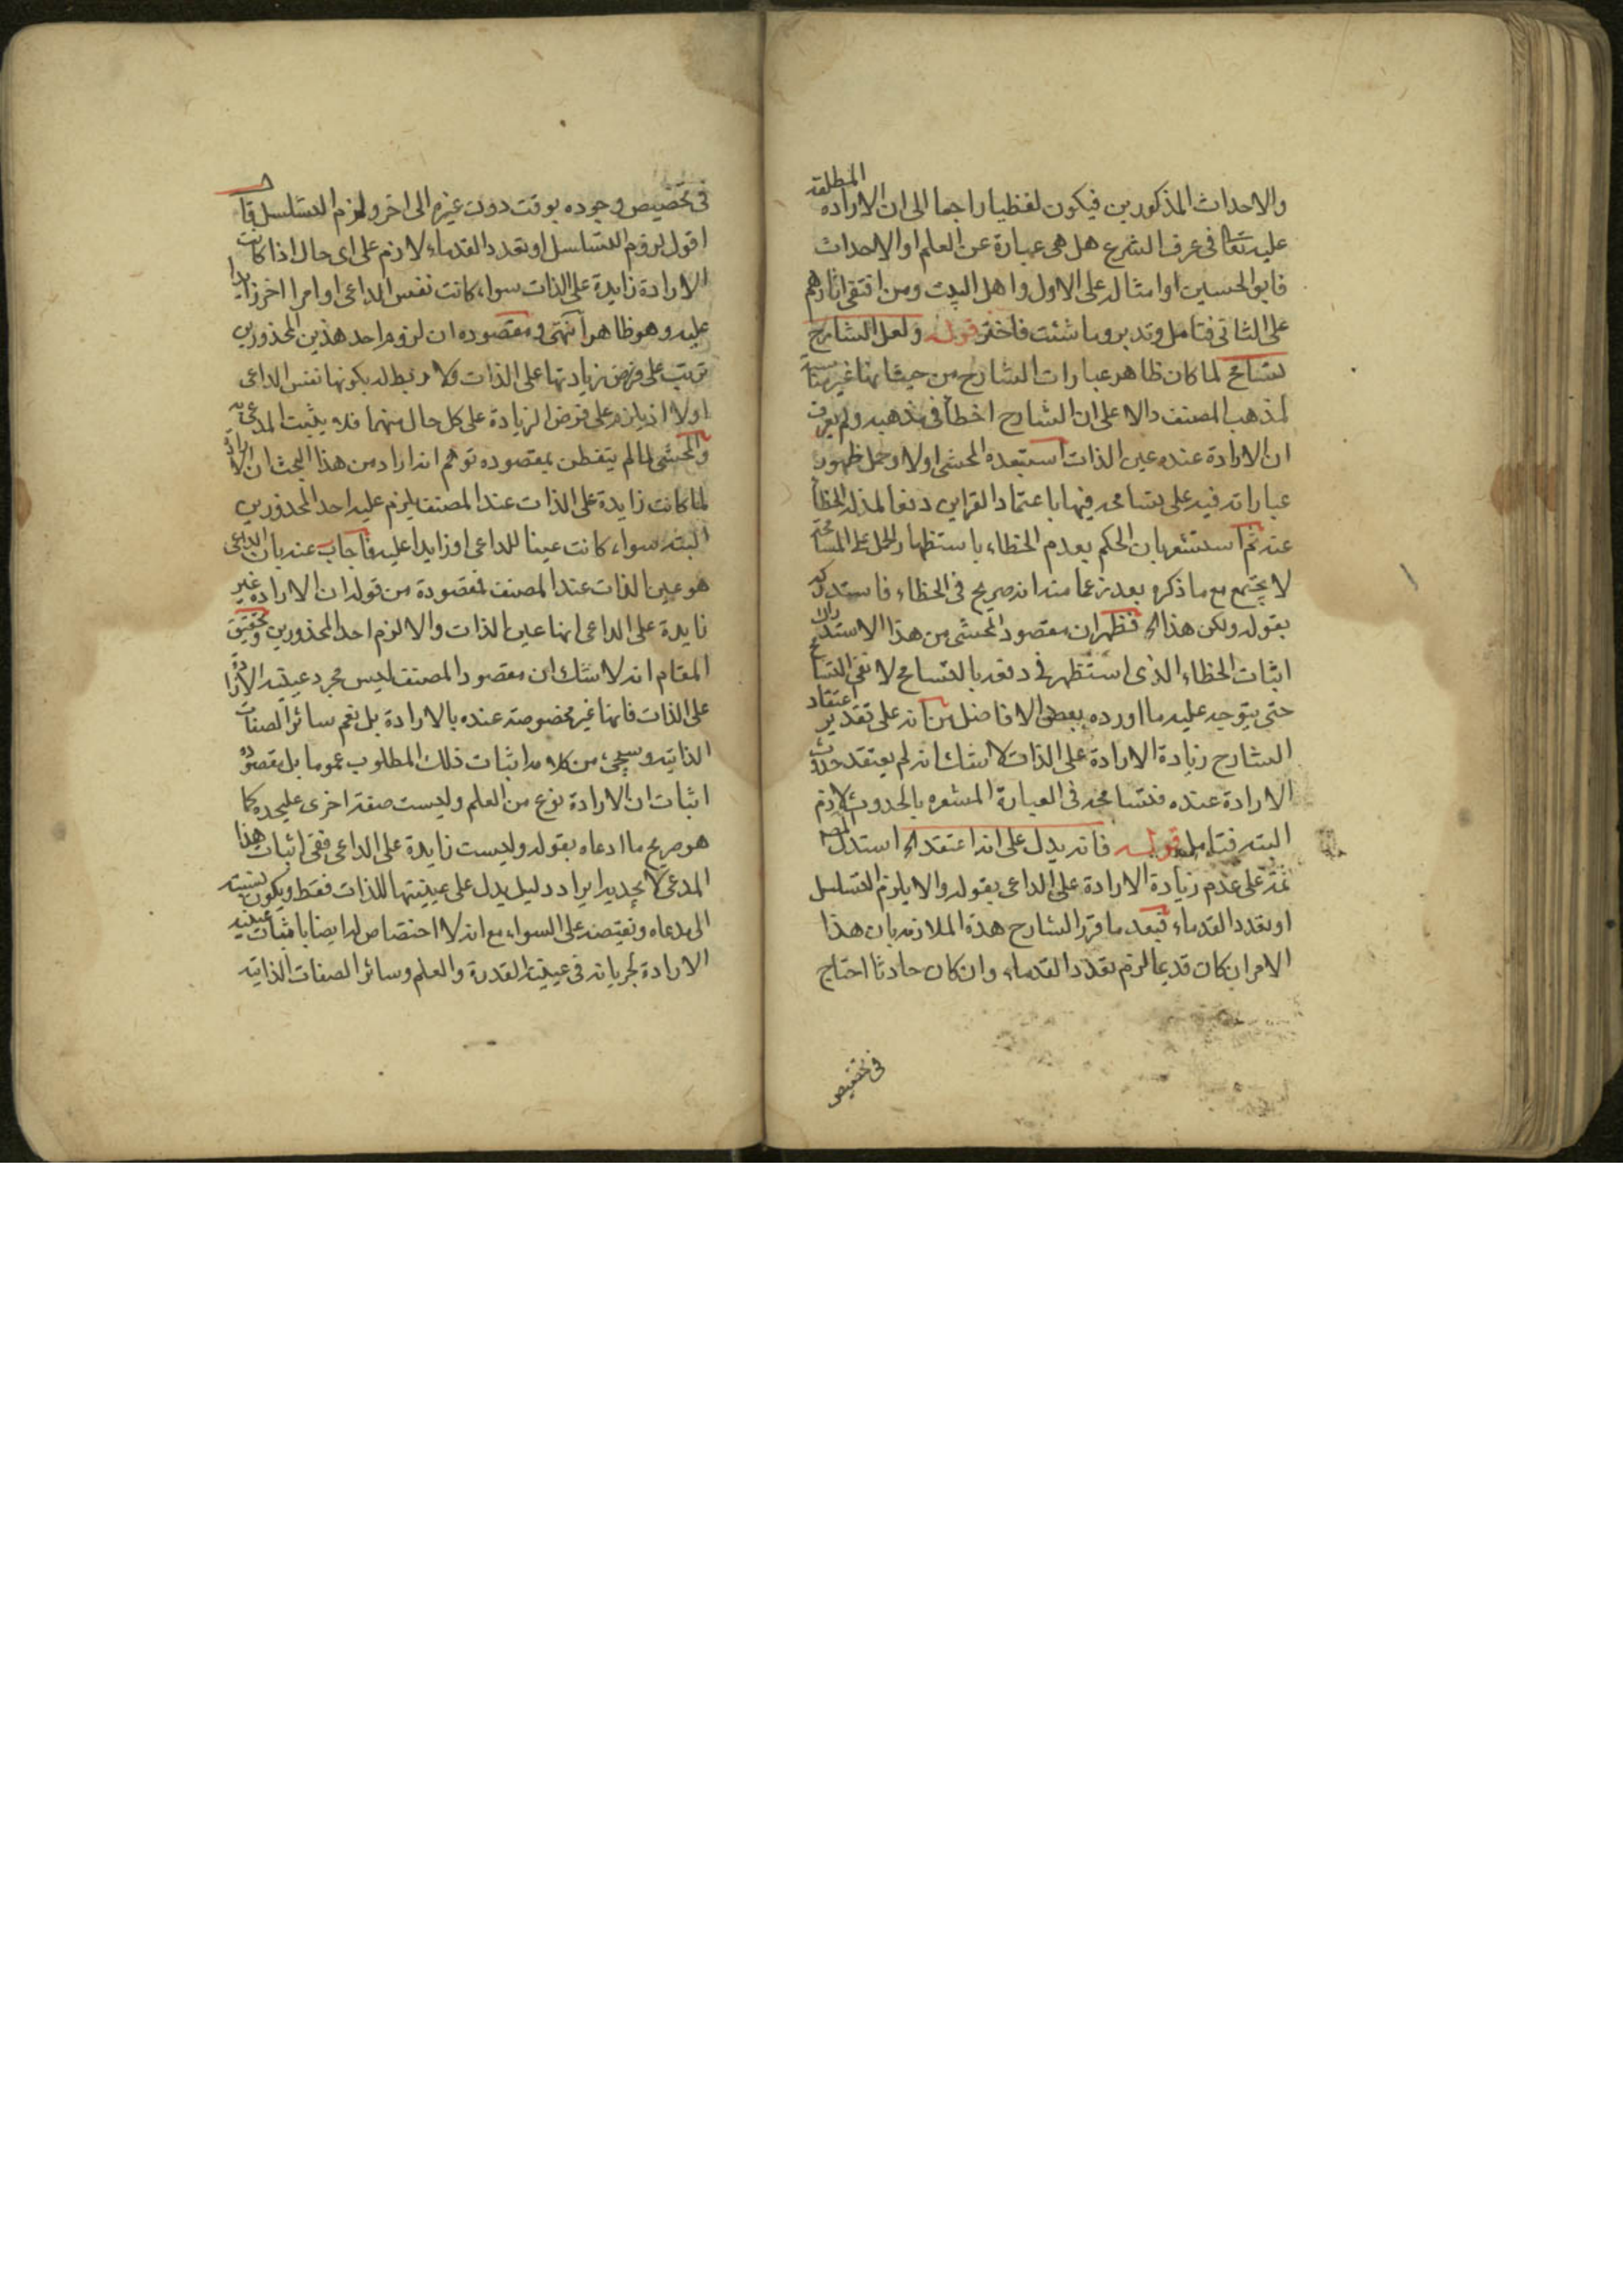 والاحداث المذكورين فيكون لفظيا راجعا الى ان الارادة المطلقة
عليه تعالى في عرف الشرع هل هي عبارة عن العلم او الاحداث
فابو الحسين او امثاله على الاول واهل البيت ومن اقتفى اثارهم
على الثاني فتامل وتدبر وما شئت فاختر قوله ولعل الشارح
تسامح لما كان ظاهر عبارات الشارح من حيث انها غير مناسبة
لمذهب المصنف دالا على ان الشارح اخطأ في مذهبه ولم يعرف
ان الارادة عنده عين الذات استبعده المحشى اولا وحمل ظهور
عباراته فيه على تسامحه فيها باعتماد القراين دفعا لمذلة الخطأ
عنه ثم استشعر بان الحكم بعدم الخطاء باستظهار الحمل على المسامحة
لا يجتمع مع ما ذكره بعد زعما منه انه صريح في الخطاء فاستدركه
بقوله ولكن هذا اه فظهر ان مقصود المحشى من هذا الاستدراك
اثبات الخطاء الذى استظهر في دفعه بالتسامح لا نفى التسامح
حتى يتوجه عليه ما اورده بعض الافاضل من انه على تقدير اعتقاد
الشارح زيادة الارادة على الذات لا شك انه لم يعتقد حدوث
الارادة عنده فتسامحه في العبارة المشعره بالحدوث لازم
البته فتامل قوله فانه يدل على انه اعتقد اه استدل المصـ
ثمة على عدم زيادة الارادة على الداعى بقوله والا يلزم التسلسل
او تعدد القدماء فبعد ما قرر الشارح هذة الملازمة بان هذا
الامر ان كان قديما لزم تعدد القدماء وان كان حادثا احتاج
في تخصيص
في تخصيص وجوده بوقت دون غيره الى اخر ولزم التسلسل قال
اقول لزوم التسلسل او تعدد القدماء لازم على اى حال اذا كانت
الارادة زايدة على الذات سواء كانت نفس الداعى او امرا اخر زايدا
عليه وهو ظاهر انتهى ومقصوده ان لزوم احد هذين المحذورين
ترتب على فرض زيادتها على الذات ولا ربط له بكونها نفس الداعى
اولا اذ يلزم على فرض الزيادة على كل حال منهما فلا يثبت المدعى
والمحشى لما لم يتفطن بمقصوده توهم انه اراد من هذا البحث ان الارادة
لما كانت زايدة على الذات عند المصنف يلزم عليه احد المحذورين
البته سواء كانت عينا للداعى او زايدا عليه فاجاب عنه بان الداعى
هو عين الذات عند المصنف فمقصودة من قوله ان الارادة غير
زايدة على الداعى انها عين الذات والا لزم احد المحذورين وتحقيق
المقام انه لا شك ان مقصود المصنف ليس مجرد عينية الارادة
على الذات فانها غير مخصوصة عنده بالارادة بل تعم سائر الصفات
الذاتية وسيجىء من كلامه اثبات ذلك المطلوب عموما بل مقصوده
اثبات ان الارادة نوع من العلم وليست صفة اخرى عليحده كما
هو صريح ما ادعاه بقوله وليست زايدة على الداعى ففى اثبات هذا
المدعى لا يجديه ايراد دليل يدل على عينيتها للذات فقط ويكون نسبته
الى مدعاه ونقيضه على السواء مع انه لا اختصاص له ايضا باثبات عينية
الارادة لجريانه في عينية القدرة والعلم وسائر الصفات الذاتية